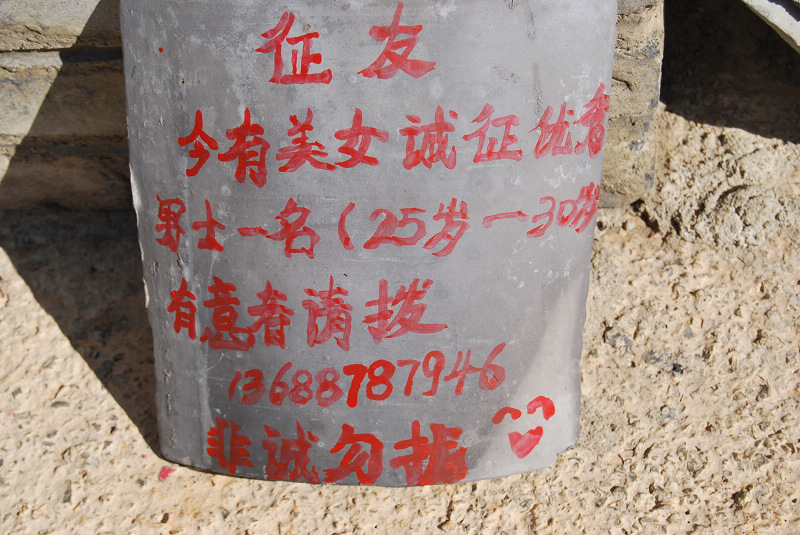 征友
今有美女诚征优秀
男士一名(25岁—30岁
有意者请拨
13688787946
非诚勿扰